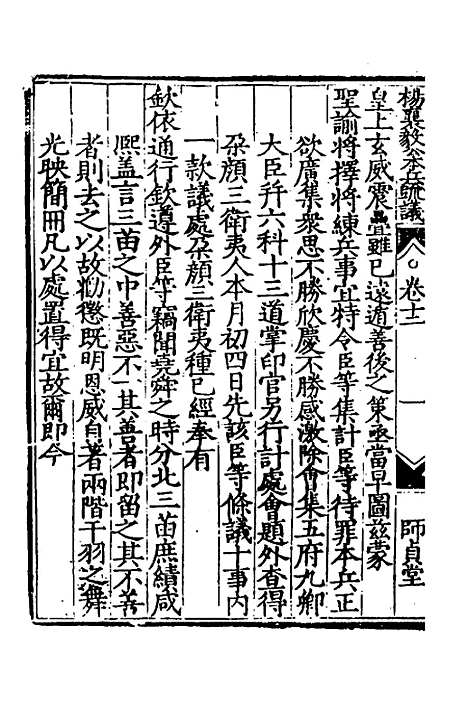 楊襄毅公本兵疏議 卷十二 一 師貞堂
皇上玄威震疊雖已遠遁善後之策亟當早圖兹蒙
聖諭將擇將練兵事宜特令臣等集計臣等待罪本兵正
欲廣集衆思不勝欣慶不勝感激除會集五府九卿
大臣幷六科十三道掌印官另行計處會題外查得
朶顔三衛夷人本月初四日先該臣等條議十事内
一款議處朶顔三衛夷種已經奉有
欽依通行欽遵外臣等竊聞堯舜之時分北三苗庶績咸
熈盖言三苗之中善惡不一其善者即留之其不善
者則去之以故勸懲既明恩威自著兩階干羽之舞
光映簡冊凡以處置得宜故爾即今